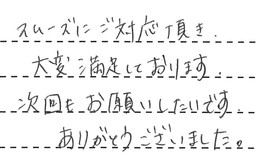 スムーズにご対応頂き.
大変満足しております.
次回もお願いしたいです.
ありがとうございました。